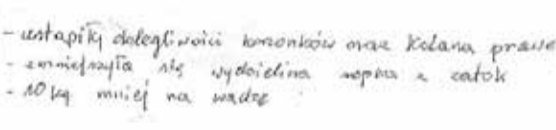 - ustąpiły dolegliwości korzonków oraz kolana prawe
- zmniejszyła się wydzielina ropna z zatok
- 10 kg mniej na wadze